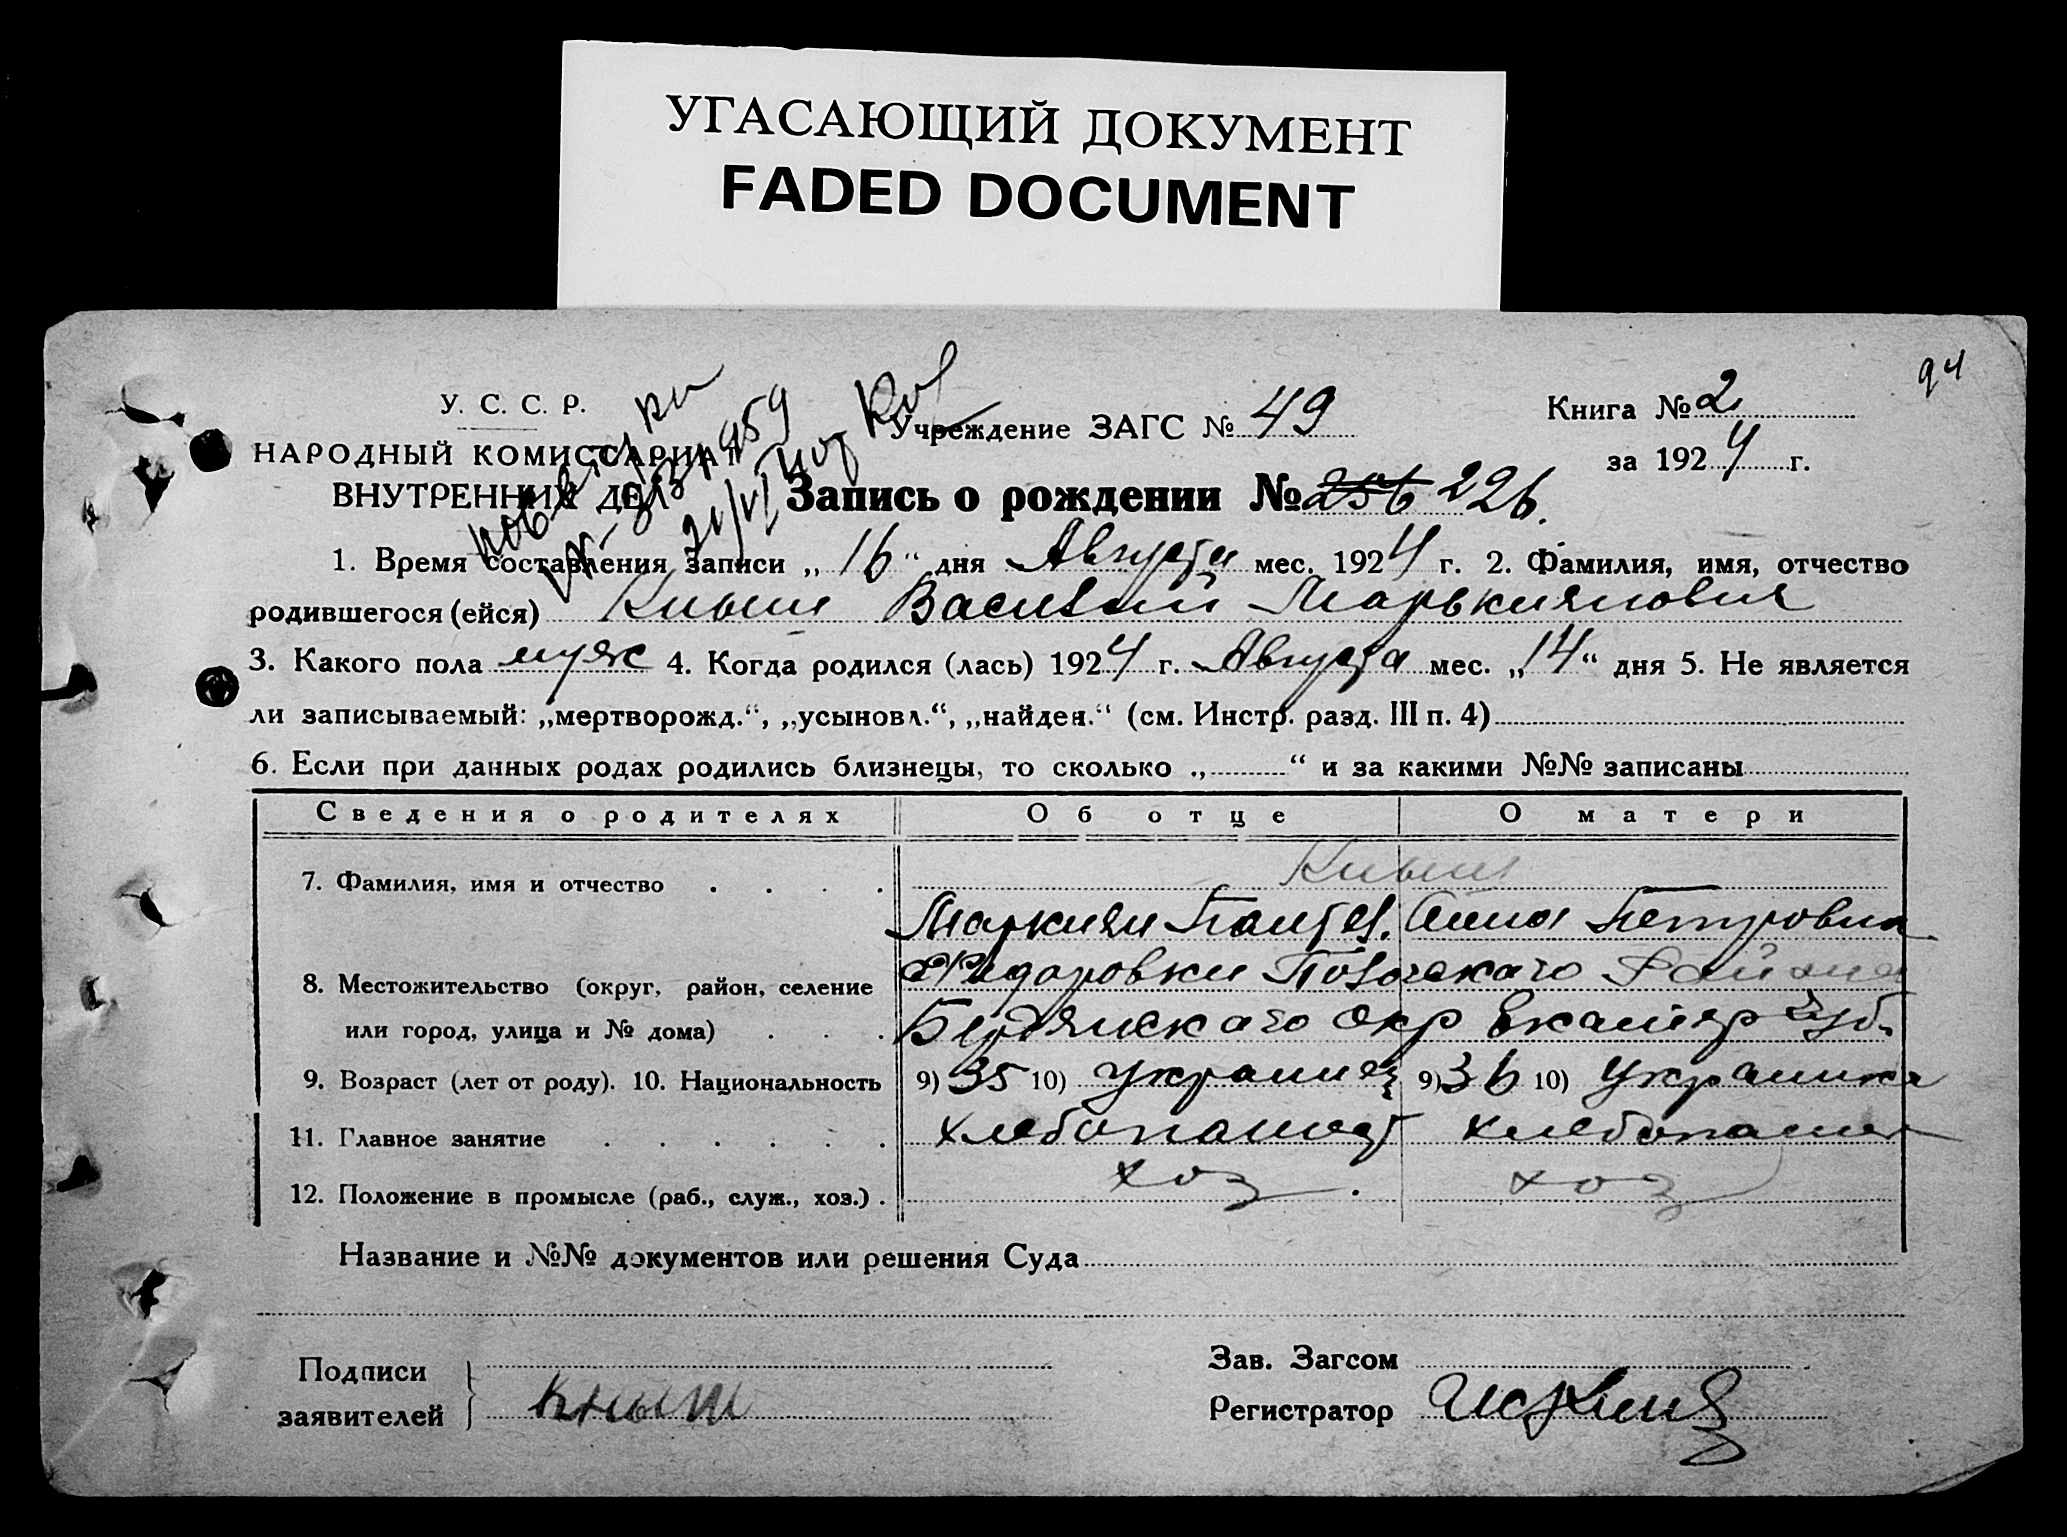 УГАСАЮЩИЙ ДОКУМЕНТ
FADED DOCUMENT
94
У. С. С. Р.
НАРОДНЫЙ КОМИССАРИАТ
ВНУТРЕННИХ ДЕЛ
Учреждение ЗАГС № 49
Книга № 2
за 1924 г.
Запись о рождении № 256 226.
1. Время составления записи „ 16 “ дня Августа мес. 1924 г. 2. Фамилия, имя, отчество
родившегося (ейся) Кныш Василий Марькиянович
3. Какого пола муж 4. Когда родился (лась) 1924 г. Августа мес. „14“ дня 5. Не является
ли записываемый: „мертворожд.“, „усыновл.“, „найден.“ (см. Инстр. разд. III п. 4)
6. Если при данных родах родились близнецы, то сколько „ “ и за какими №№ записаны
Сведения о родителях Об отце О матери
7. Фамилия, имя и отчество Кныш
Маркиян Пантел. Анна Петровна
8. Местожительство (округ, район, селение Федоровки Района
или город, улица и № дома) Бердянскаго Окр Екатер губ.
9. Возраст (лет от роду). 10. Национальность 9) 35 10) Украинец 9) 36 10) Украинка
11. Главное занятие хлебопашест хлебопашест
12. Положение в промысле (раб., служ., хоз.) хоз. хоз
Название и №№ документов или решения Суда
Подписи
заявителей Кныш
Зав. Загсом
Регистратор